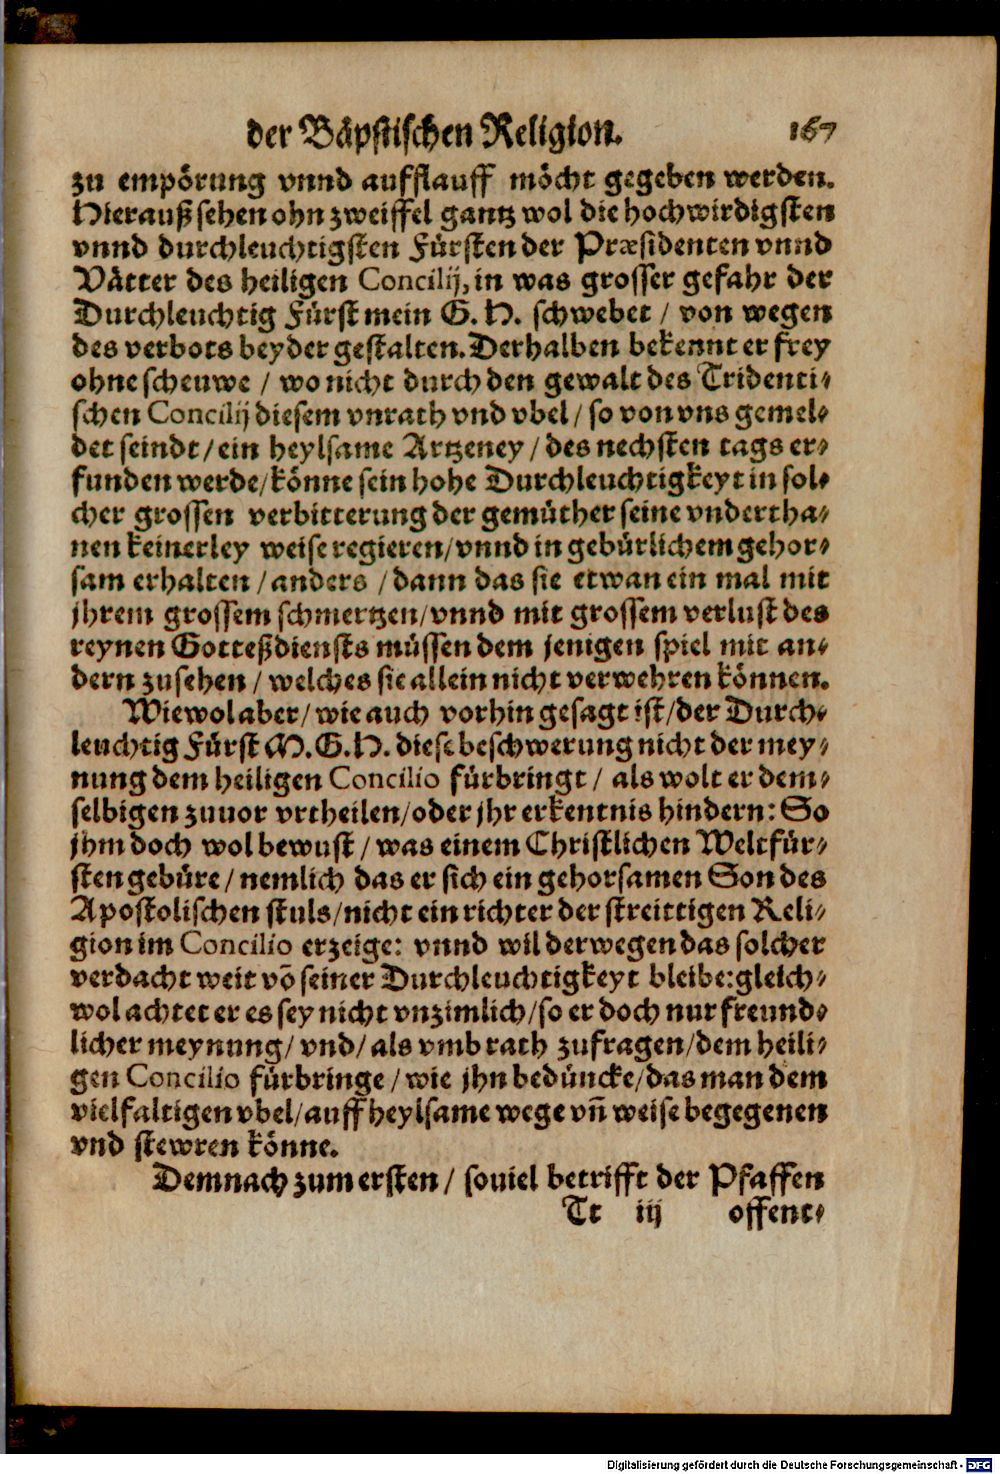 der Bäpstischen Religion. 167
zu empörung vnnd aufflauff möcht gegeben werden.
Hierauß sehen ohn zweiffel gantz wol die hochwirdigsten
vnnd durchleuchtigsten Fürsten der Præsidenten vnnd
Vätter des heiligen Concilij, in was grosser gefahr der
Durchleuchtig Fürst mein G. H. schwebet / von wegen
des verbots beyder gestalten. Derhalben bekennt er frey
ohne scheuwe / wo nicht durch den gewalt des Tridenti⸗
schen Concilij diesem vnrath vnd vbel / so von vns gemel⸗
det seindt / ein heylsame Artzeney / des nechsten tags er⸗
funden werde / könne sein hohe Durchleuchtigkeyt in sol⸗
cher grossen verbitterung der gemüther seine vndertha⸗
nen keinerley weise regieren / vnnd in gebürlichem gehor⸗
sam erhalten / anders / dann das sie etwan ein mal mit
jhrem grossem schmertzen / vnnd mit grossem verlust des
reynen Gotteßdiensts müssen dem jenigen spiel mit an⸗
dern zusehen / welches sie allein nicht verwehren können.
Wiewol aber / wie auch vorhin gesagt ist / der Durch⸗
leuchtig Fürst M. G. H. diese beschwerung nicht der mey⸗
nung dem heiligen Concilio fürbringt / als wolt er dem⸗
selbigen zuuor vrtheilen / oder jhr erkentnis hindern: So
jhm doch wol bewust / was einem Christlichen Weltfür⸗
sten gebüre / nemlich das er sich ein gehorsamen Son des
Apostolischen stuls / nicht ein richter der streittigen Reli⸗
gion im Concilio erzeige: vnnd wil derwegen das solcher
verdacht weit võ seiner Durchleuchtigkeyt bleibe: gleich⸗
wol achtet er es sey nicht vnzimlich / so er doch nur freund⸗
licher meynung / vnd / als vmb rath zufragen / dem heili⸗
gen Concilio fürbringe / wie jhn bedüncke / das man dem
vielfaltigen vbel / auff heylsame wege vñ weise begegenen
vnd stewren könne.
Demnach zum ersten / souiel betrifft der Pfaffen
Tt iij offent⸗
Digitalisierung gefördert durch die Deutsche Forschungsgemeinschaft - DFG